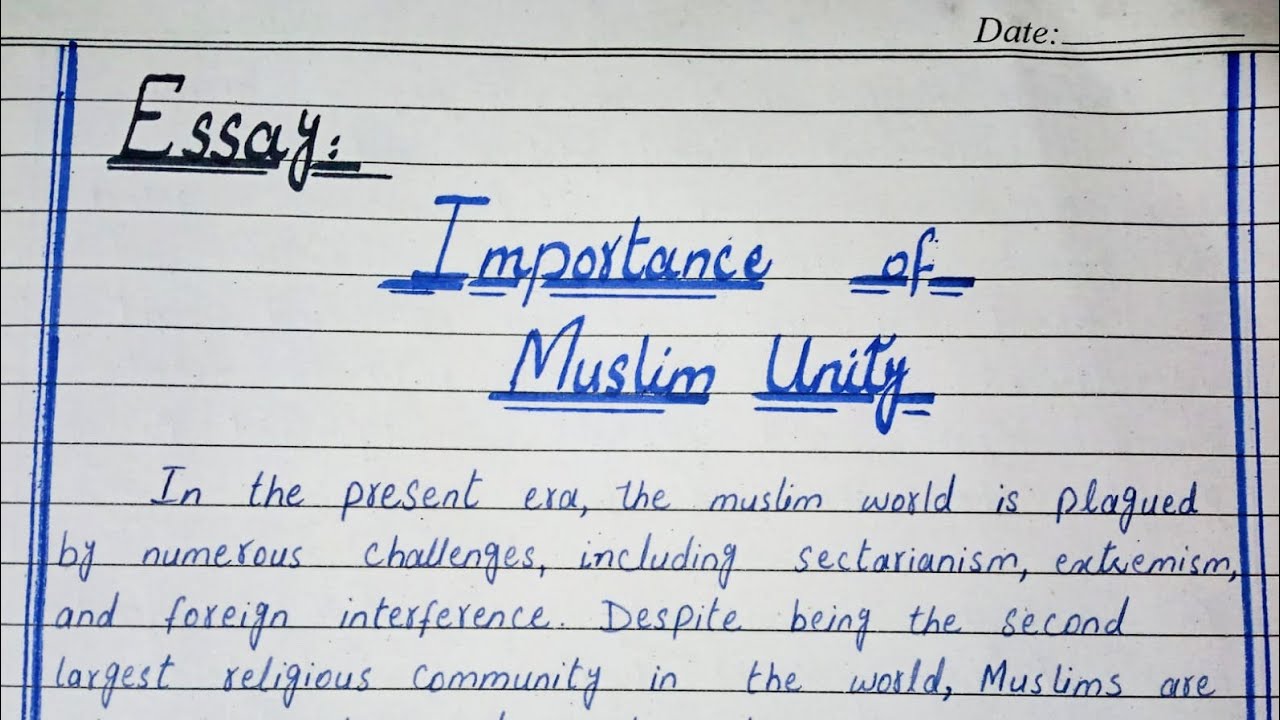 Date:
Essay:
Importance of
Muslim Unity
In the present era, the muslim world is plagued
by numerous challenges, including sectarianism, extremism,
and foreign interference. Despite being the second
largest religious community in the world, Muslims are